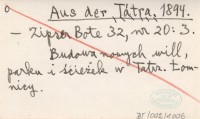 o
Aus der Tátra, 1894.
– Zipser Bote 32, nr 20: 3.
Budowa nowych will,
parku i ścieżek w Tatr. Łom-
nicy.